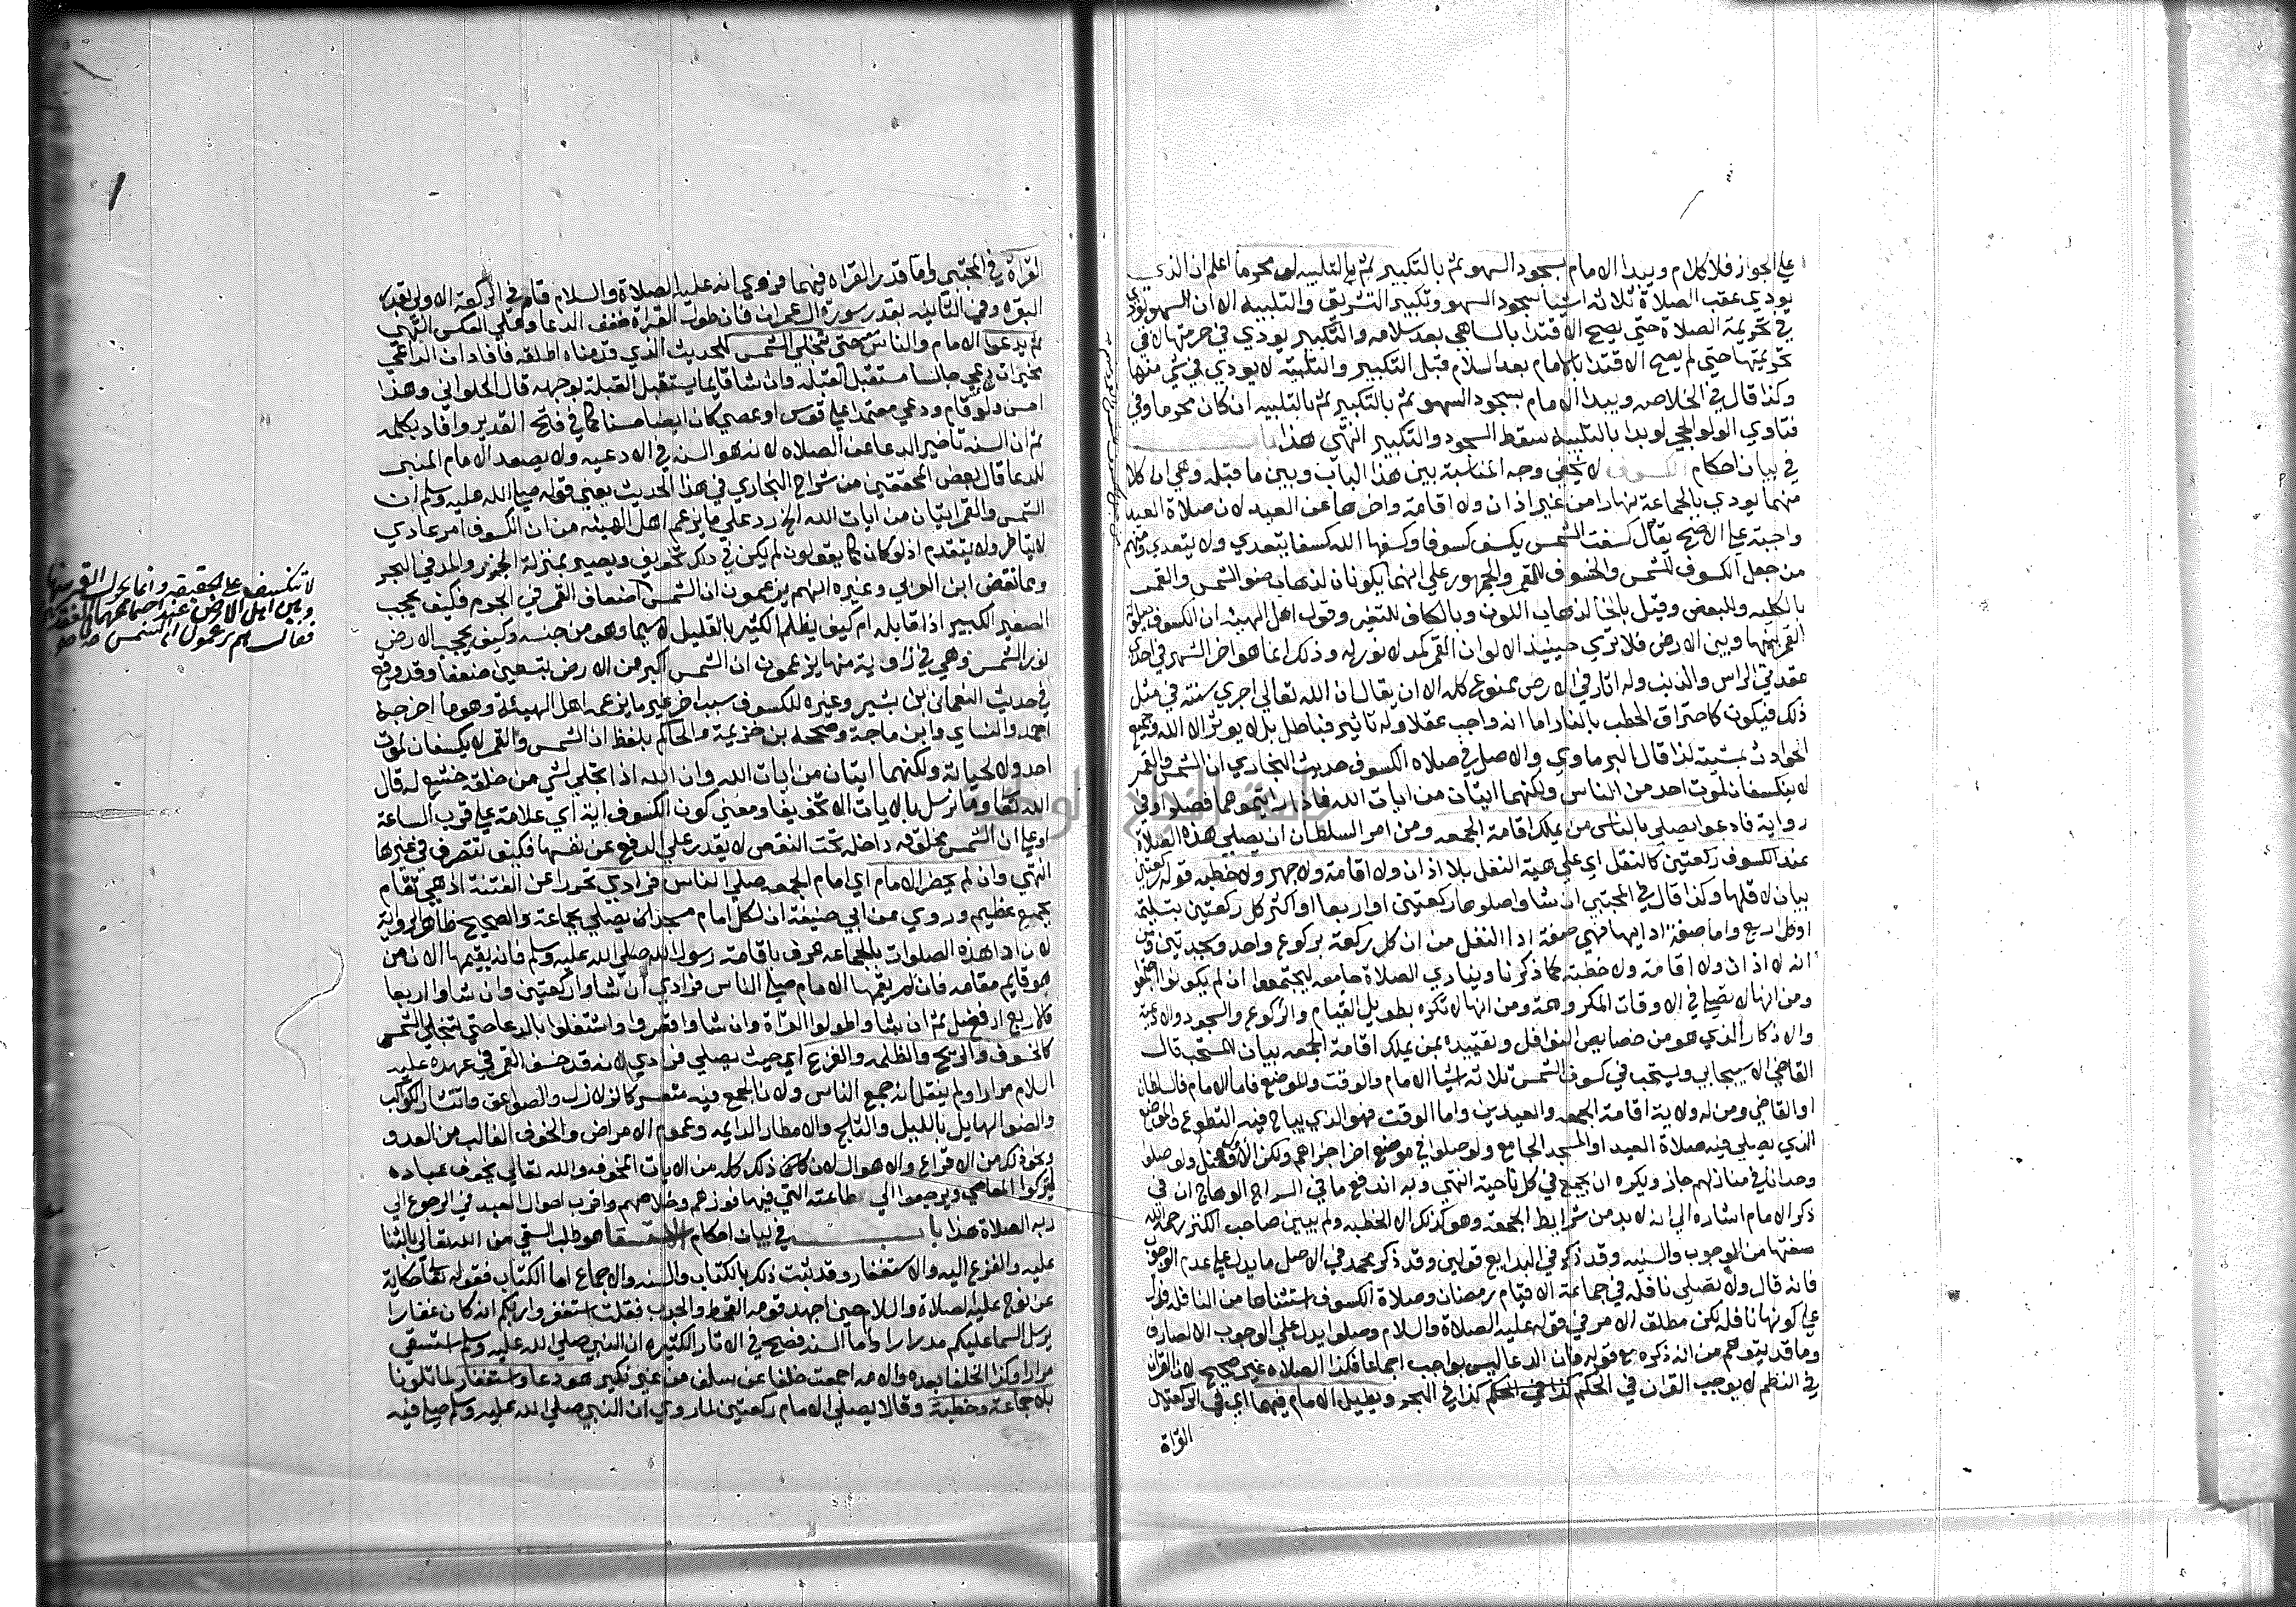 علي الجواز فلا كلام ويبدا الامام بسجود السهو ثم بالتكبير ثم بالتلبيه لو محرما اعلم ان الذي
يودي عقب الصلاة ثلاثة اشيا سجود السهو وتكبير التشريق والتلبيه الا ان السهو يودي
في تحريمة الصلاة حتي يصح الاقتدا بالساهي بعد سلامه والتكبير يودي في حرمتها لا في
تحريمتها حتي لم يصح الاقتدا بالامام بعد السلام قبل التكبير والتلبيه لا يودي في شي منها
وكذا قال في الخلاصه ويبدا الامام بسجود السهو ثم بالتكبير ثم بالتلبيه ان كان محرما وفي
فتاوي الولوالجي لو بدا بالتلبيه سقط السجود والتكبير انتهي هذا
في بيان احكام الكسوف لا يخفي وجه المناسبة بين هذا الباب وبين ما قبله وهي ان كلا
منهما يودي بالجماعة نهارا من غير اذان ولا اقامة واخرها عن العيد لان صلاة العيد
واجبة علي الاصح يقال كسفت الشمس يكسف كسوفا وكسفها الله كسفا يتعدي ولا يتعدي ومنهم
من جعل الكسوف للشمس والخسوف للقمر والجمهور علي انهما يكونان لذهاب ضو الشمس والقمر
بالكليه وللبعض وقيل بالخا لذهاب اللون وبالكاف للتغير وقول اهل الهيئة ان الكسوف حيلولة
القمر بينها وبين الارض فلا تري حينيذ الا لوان القمر كمد لا نور له وذلك انما هو اخر الشهر في احدي
عقدتي الراس والذنب وله اثار في الارض ممنوع كله الا ان يقال ان الله تعالي اجري سنته في مثل
ذلك فيكون كاحتراق الحطب بالنار اما انه واجب عقلا وله تاثير فباطل بل لا يوثر الا الله وجميع
الحوادث بمشيته لذا قال البرماوي والاصل في صلاه الكسوف حديث البخاري ان الشمس والقمر
لا ينكسفان لموت احد من الناس ولكنهما ايتان من ايات الله فاذا رايتموهما فصلوا وفي
رواية فادعوا يصلي بالناس من يملك اقامة الجمعه ومن امر السلطان ان يصلي هذه الصلاة
عند الكسوف ركعتين كالنفل اي علي هية النفل بلا اذان ولا اقامة ولا جهر ولا خطبه قوله ركعتين
بيان لاقلها وكذا قال في المجتبي ان شاوا صلوها ركعتين او اربعا او اكثر كل ركعتين بتسليمة
او كل اربع واما صفة ادايها فهي صفة ادا النفل من ان كل ركعة بركوع واحد وسجدتين ومن
انه لا اذان ولا اقامة ولا خطبة كما ذكرنا وينادي الصلاة جامعه ليجتمعوا ان لم يكونوا اجتمعوا
ومن انها لا تصلي في الاوقات المكروهة ومن انها لا تكره بطويل القيام والركوع والسجود والادعية
والاذكار الذي هو من خصايص النوافل وتقييده بمن يملك اقامة الجمعه بيان المستحب قال
القاضي الاسبيجابي ويستحب في كسوف الشمس ثلاثة اشيا الامام والوقت والموضع فاما الامام فالسلطان
او القاضي ومن له ولاية اقامة الجمعه والعيدين واما الوقت فهو الذي يباح فيه التطوع والموضع
الذي يصلي فيه صلاة العيد او المسجد الجامع ولو صلوا في موضع اخر اجزاهم ولكن الاول افضل ولو صلوا
وحدانا في منازلهم جاز ويكره ان يجمع في كل ناحية انتهي وبه اندفع ما في السراج الوهاج ان في
ذكر الامام اشاره الي انه لا بد من شرايط الجمعة وهو كذلك الا الخطبه ولم يبين صاحب الكنز رحمه الله
صفتها من الوجوب والسنيه وقد ذكر في البدايع قولين وقد ذكر محمد في الاصل ما يدل علي عدم الوجوب
فانه قال ولا يصلي نافلة في جماعة الا قيام رمضان وصلاة الكسوف استثناها من النافله فدل
علي كونها نافلة لكن مطلق الامر في قوله عليه الصلاة والسلام وصلوا يدل علي الوجوب الا لصارف
وما قد يتوهم من انه ذكره مع قوله فان الدعا ليس بواجب اجماعا فكذا الصلاه غير صحيح لان القران
في النظم لا يوجب القران في الحكم كذا في الحكم كذا في البحر ويطيل الامام فيهما اي في الركعتين
القراة
القراة في المجتبي واما قدر القراه فيهما فروي انه عليه الصلاة والسلام قام في الركعة الاولي بقدر
البقره وفي الثانيه بقدر سورة ال عمران فان طول القراة خفف الدعا وعلي العكس انتهي
ثم يدعوا الامام والناس معه حتي تنجلي الشمس للحديث الذي قدمناه اطلقه فافاد ان الداعي
مخير ان يدعي جالسا مستقبل القبله وان شا قايما يستقبل القبلة بوجهه قال الحلواني وهذا
احسن ولو قام ودعي معتمدا علي قوس او عصي كان ايضا حسنا كما في فتح القدير وافاد بكلمه
ثم ان السنه تاخير الدعا عن الصلاه لانه هو السنه في الادعيه ولا يصعد الامام المنبر
للدعا قال بعض المحققين من شراح البخاري في هذا الحديث يعني قوله صلي الله عليه وسلم ان
الشمس والقمر ايتان من ايات الله الخ رد علي ما يزعم اهل الهيئه من ان الكسوف امر عادي
لا يتاخر ولا يتقدم اذ لو كان كما يقولون لم يكن في ذلك تخويف ويصير بمنزلة الجزر والمد في البحر
ومما نقض ابن العربي وغيره انهم يزعمون ان الشمس اضعاف القمر في الجرم فكيف يحجب
الصغير الكبير اذا قابله ام كيف يظلم الكثير بالقليل لا سيما وهو من جنسه وكيف يحجب الارض
نور الشمس وهي في زاوية منها يزعمون ان الشمس اكبر من الارض بتسعين ضعفا وقد وقع
في حديث النعمان بن بشير وغيره للكسوف سبب اخر غير ما يزعمه اهل الهيئة وهو ما اخرجه
احمد والنساي وابن ماجة وصححه بن خزيمة والحاكم بلفظ ان الشمس والقمر لا يكسفان لموت
احد ولا لحياته ولكنهما ايتان من ايات الله وان الله اذا تجلي لشي من خلقه خشع له قال
الله تعالي وما نرسل بالايات الا تخويفا ومعني كون الكسوف اية اي علامة علي قرب الساعة
او علي ان الشمس مخلوقه داخله تحت النقص لا يقدر علي الدفع عن نفسها فكيف تتصرف في غيرها
انتهي وان لم يحضر الامام اي امام الجمعه صلي الناس فرادي تحرزا عن الفتنة اذ هي تقام
بجمع عظيم وروي عن ابي حنيفة ان لكل امام مسجد ان يصلي بجماعة والصحيح ظاهر الرواية
لان ادا هذه الصلوات بالجماعه عرف باقامة رسول الله صلي الله عليه وسلم فانه يقيمها الا من
هو قايم مقامه فان لم يقمها الامام صلي الناس فرادي ان شاوا ركعتين وان شاوا اربعا
والاربع افضل ثم ان شاوا طولوا القراة وان شاوا قصروا واشتغلوا بالدعا حتي تنجلي الشمس
كالخسوف والريح والظلمه والفزع اي حيث يصلي فرادي لانه قد خسف القمر في عهده عليه
السلام مرارا ولم ينقل انه جمع الناس ولان الجمع فيه متعسر كالزلازل والصواعق وانتشار الكواكب
والضو الهايل بالليل والثلج والامطار الدايمه وعموم الامراض والخوف الغالب من العدو
ونحو ذلك من الافزاع والاهوال لان ذلك كله من الايات المخوفه والله تعالي يخوف عباده
ليتركوا المعاصي ويرجعوا الي طاعته التي فيها فوزهم وخلاصهم واقرب احوال العبد في الرجوع الي
ربه الصلاة هذا باب في بيان احكام الاستسقا هو طلب السقي من الله تعالي بالثنا
عليه والفزع اليه والاستغفار وقد ثبت ذلك بالكتاب والسنه والاجماع اما الكتاب فقوله تعالي حكاية
عن نوح عليه الصلاة والسلام حين اجهد قومه القحط والجدب فقلت استغفروا ربكم انه كان غفارا
يرسل السما عليكم مدرارا واما السنه فصح في الاثار الكثيره ان النبي صلي الله عليه وسلم استسقي
مرارا وكذا الخلفا بعده والامه اجمعت خلفا عن سلف من غير نكير هو دعا واستغفار لما تلونا
بلا جماعة وخطبة وقالا يصلي الامام ركعتين لما روي ان النبي صلي الله عليه وسلم صلي فيه
لا تنكسف علي الحقيقه وانما يحول القمر بينها
وبين اهل الارض عند اجتماعهما في العقدتين
فقال هم يزعمون ان الشمس